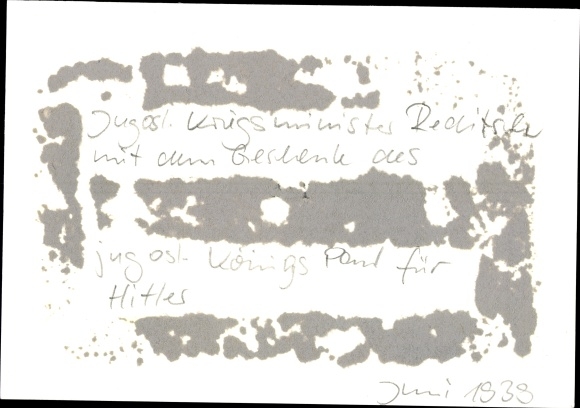 Jugosl. Kriegsminister Reditsch
mit dem Geschenk des
jugosl. Königs Paul für
Hitler
Juni 1939